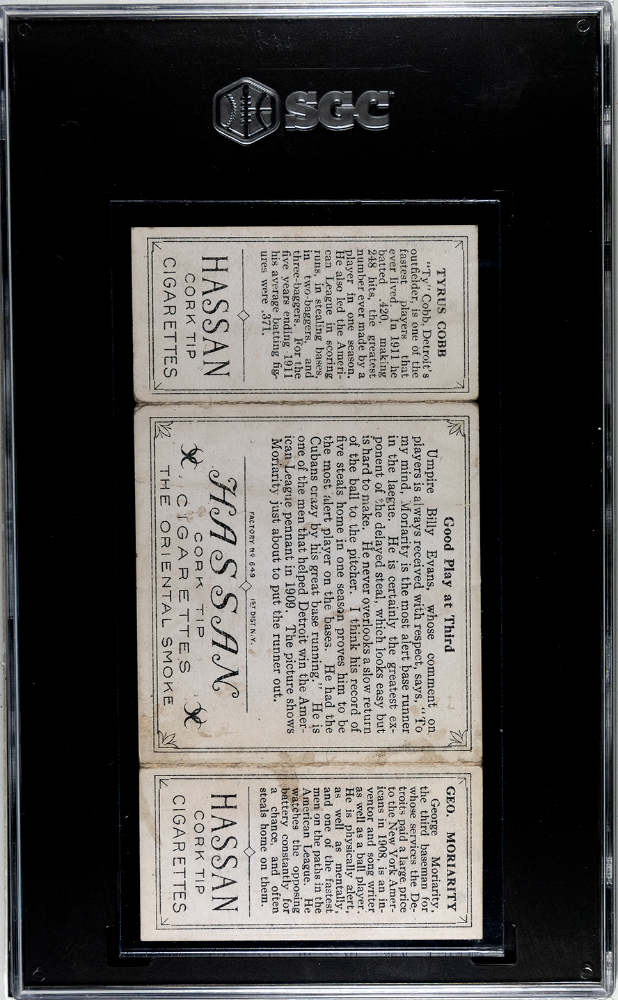 SGC
TYRUS COBB
"Ty" Cobb, Detroit's
outfielder, is one of the
fastest players that
ever lived. In 1911 he
batted .420, making
248 hits, the greatest
number ever made by a
player in one season.
He also led the Ameri-
can League in scoring
runs, in stealing bases,
in two-baggers, and
three-baggers. For the
five years ending 1911
his average batting fig-
ures were .371.
HASSAN
CORK TIP
CIGARETTES
Good Play at Third
Umpire Billy Evans, whose comment on
players is always received with respect, says, "To
my mind, Moriarity is the most alert base runner
in the laegue. He is certainly the greatest ex-
ponent of the delayed steal, which looks easy but
is hard to make. He never overlooks a slow return
of the ball to the pitcher. I think his record of
five steals home in one season proves him to be
the most alert player on the bases. He had the
Cubans crazy by his great base running." He is
one of the men that helped Detroit win the Amer-
ican League pennant in 1909. The picture shows
Moriarity just about to put the runner out.
FACTORY No 649 1ST DIST. N.Y.
HASSAN
CORK TIP
CIGARETTES
THE ORIENTAL SMOKE
GEO. MORIARITY
George Moriarity,
the third baseman for
whose services the De-
troits paid a large price
to the New York Amer-
icans in 1908, is an in-
ventor and song writer
as well as a ball player.
He is physically alert,
as well as mentally,
and one of the fastest
men on the paths in the
American League. He
watches the opposing
battery constantly for
a chance, and often
steals home on them.
HASSAN
CORK TIP
CIGARETTES